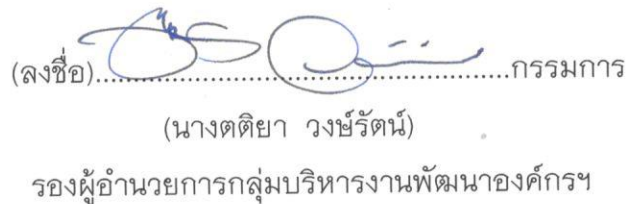 (ลงชื่อ)....................................................กรรมการ
(นางตติยา วงษ์รัตน์)
รองผู้อำนวยการกลุ่มบริหารงานพัฒนาองค์กรฯ